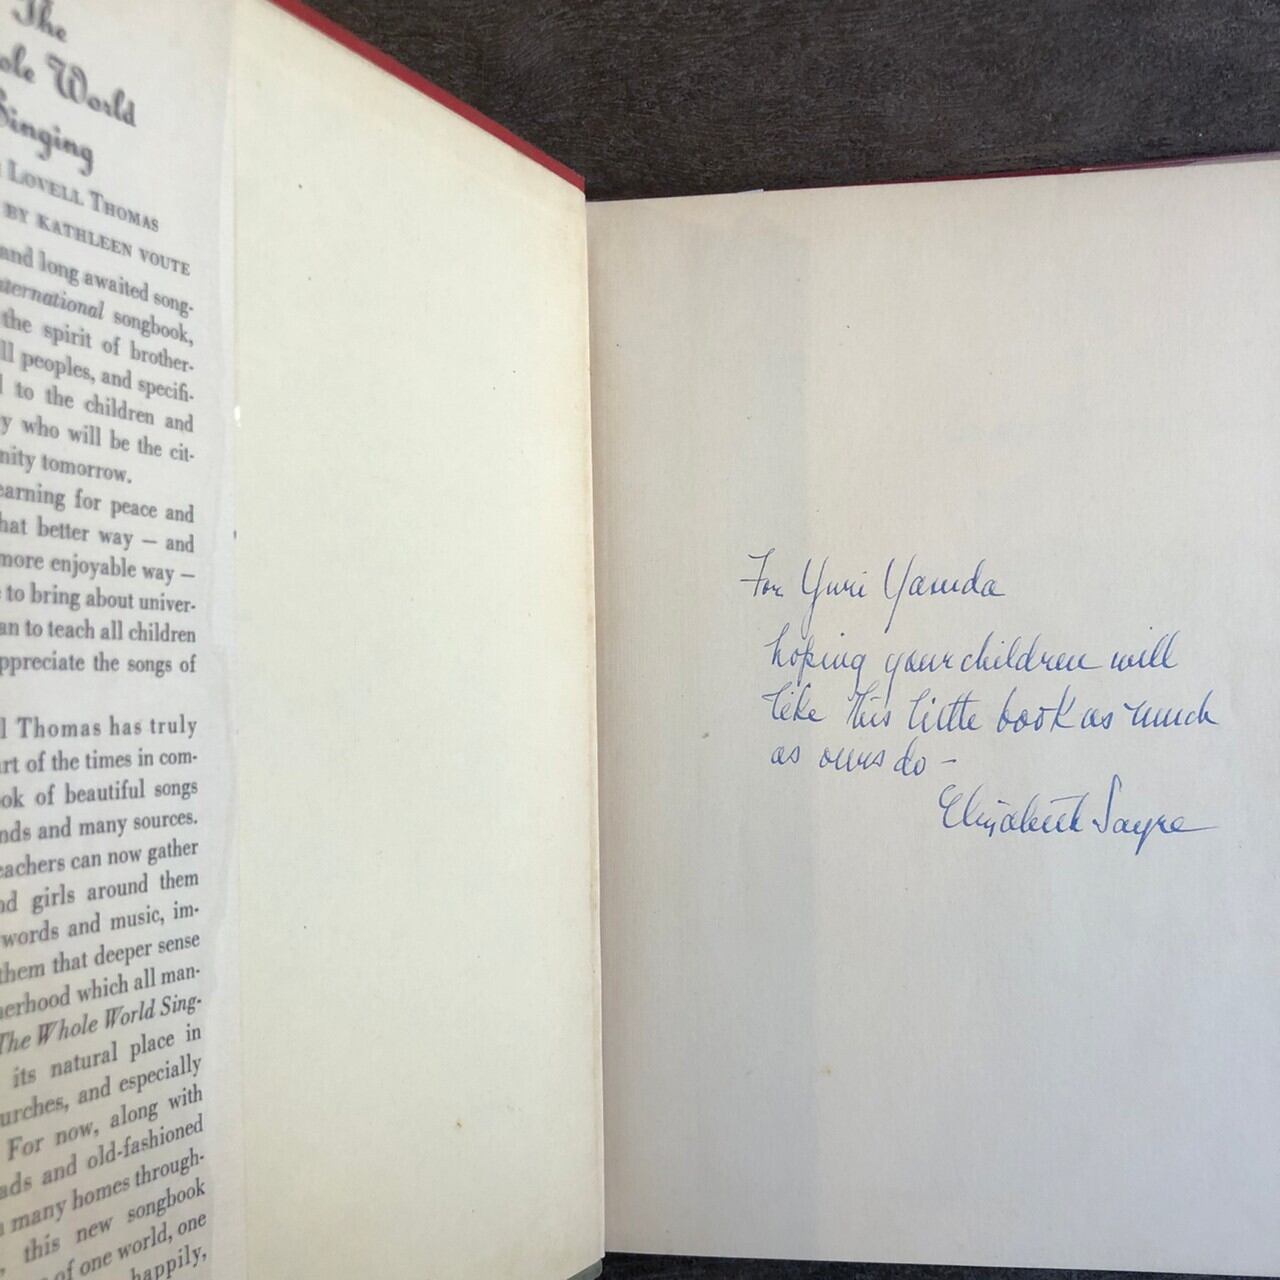 The
World
Singing
LOVELL THOMAS
BY KATHLEEN VOUTE
and long awaited song-
songbook,
the spirit of brother-
peoples, and specifi-
to the children and
who will be the cit-
tomorrow.
for peace and
better way — and
more enjoyable way —
to bring about univer-
to teach all children
the songs of
Thomas has truly
of the times in com-
of beautiful songs
and many sources.
can now gather
girls around them
words and music, im-
them that deeper sense
which all man-
The Whole World Sing-
its natural place in
and especially
For now, along with
and old-fashioned
many homes through-
this new songbook
of one world, one
happily,
For Yuri Yasuda
hoping your children will
like this little book as much
as ours do -
Elizabeth Sayre